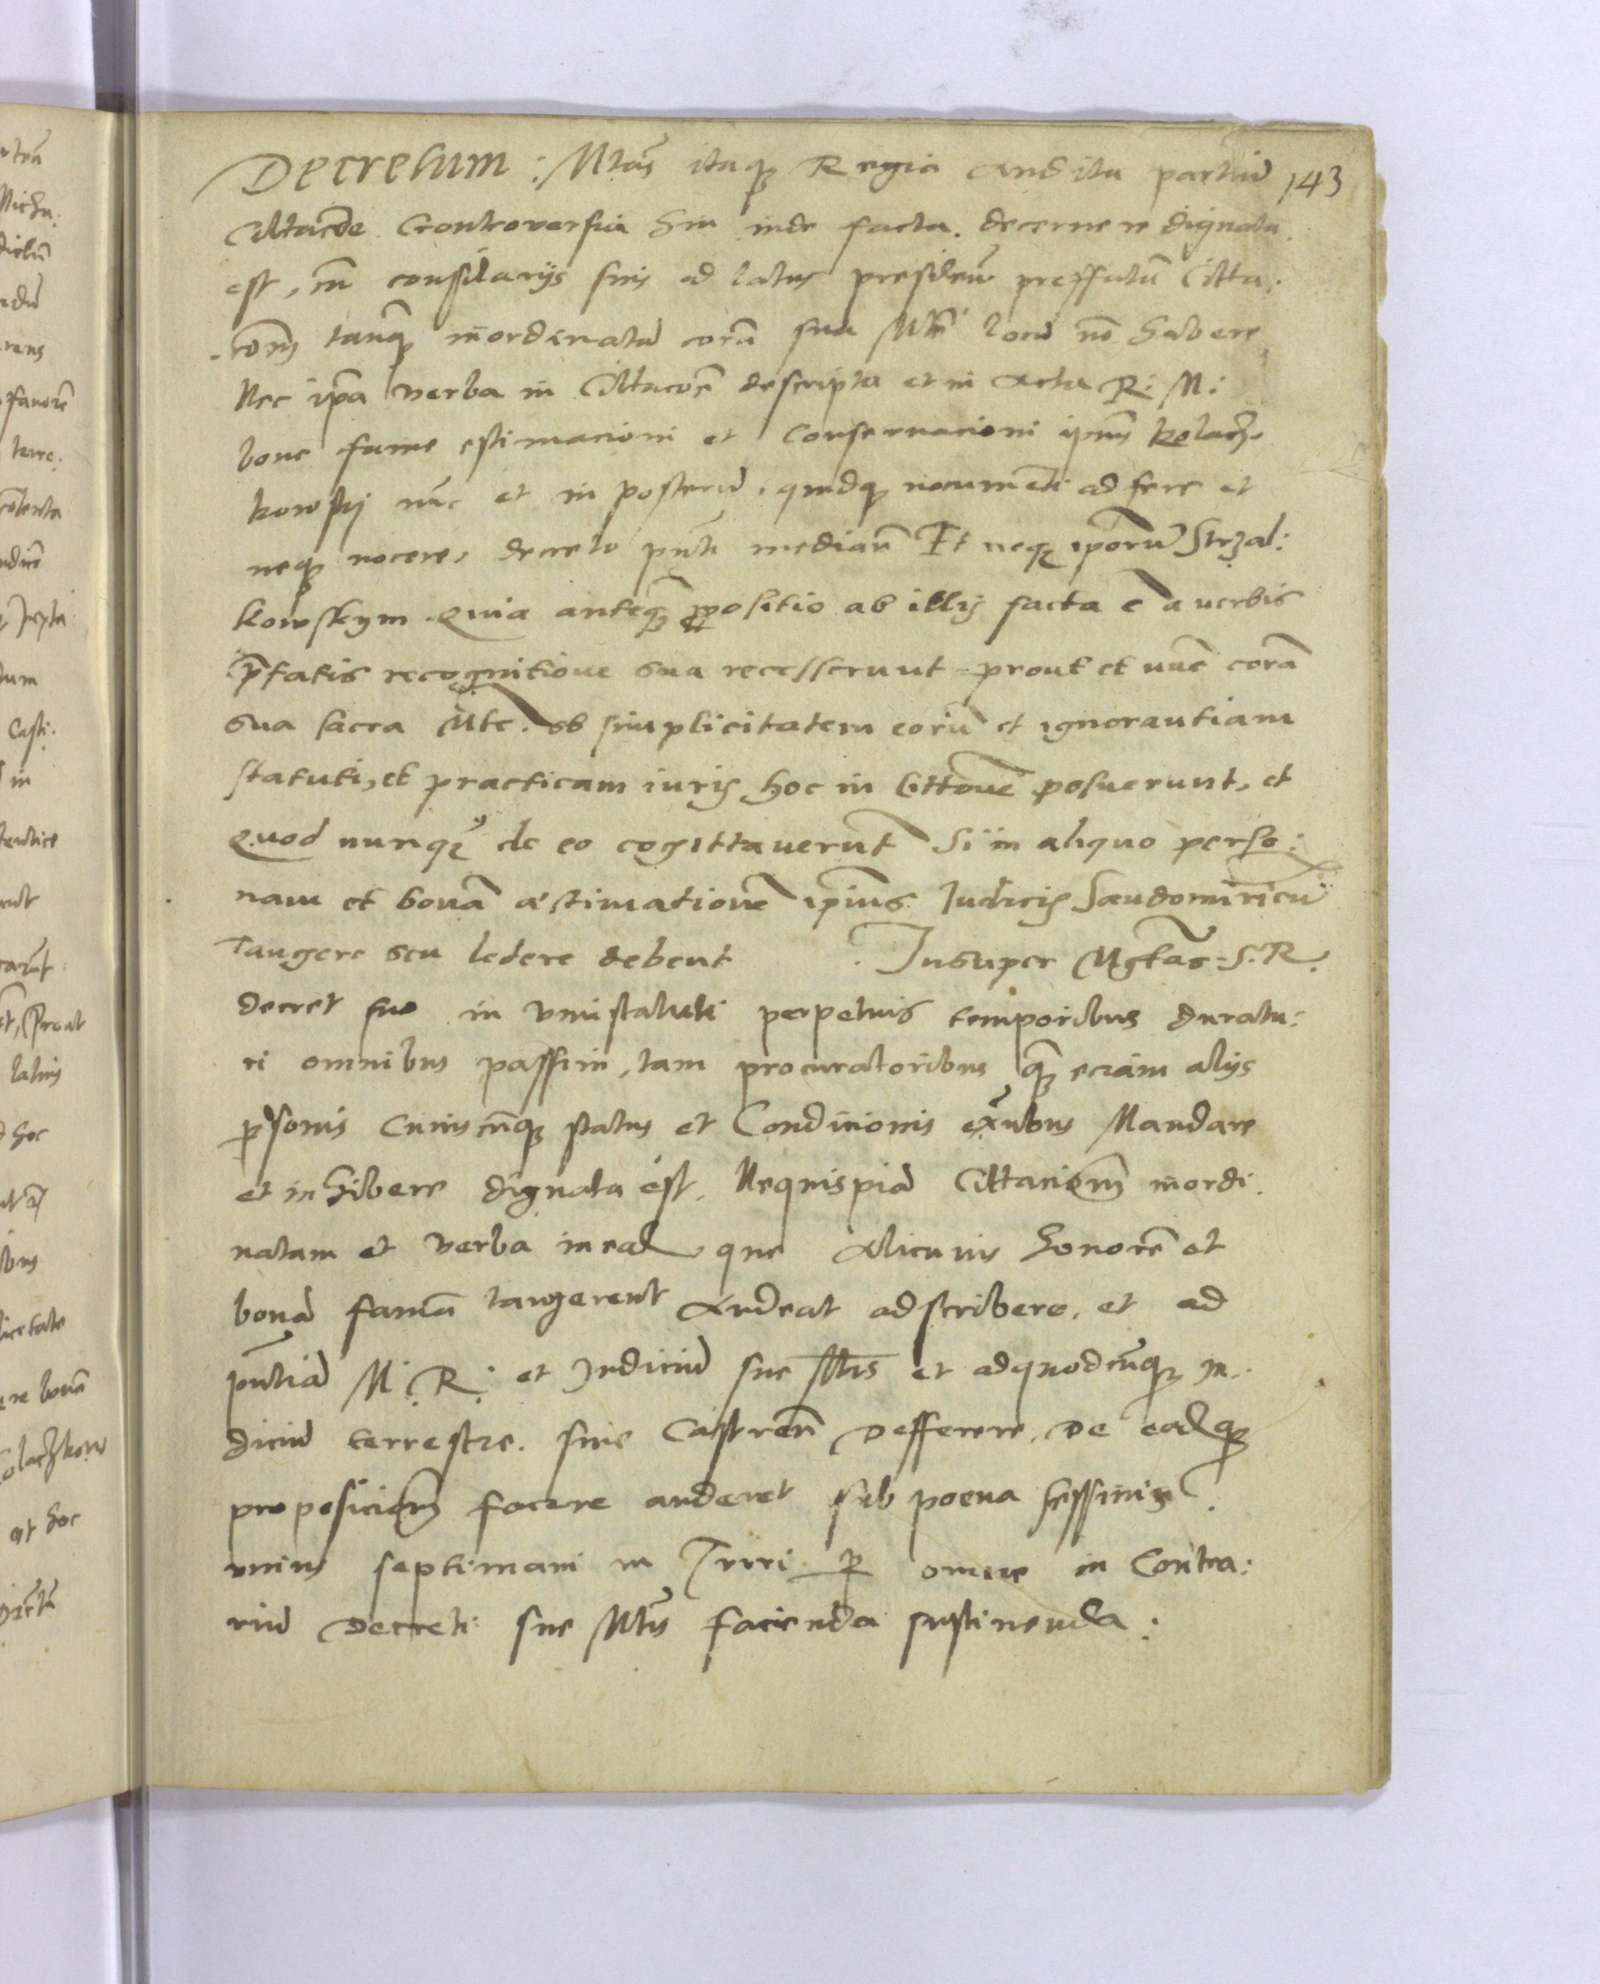 143
Decretum : Mtas itaq Regia audita partiu
Cittacoe Controversia hin inde facta. decernere dignata
est, cu consilarijs suis ad latus presiden preffatu Citta.
.coem tanq inordinatu cora sua Mte locu no habere
Nec ipa verba in Cittacoe descripta et in Acta R: M:
bone fame estimacioni et Conservacioni ipius Kolacz.
kowskj nuc et in posteru, quidq nocumeti adfere et
neq nocere, decreto pnti median Et neq ipsoru Strzal:
kowskym. Quia anteq propositio ab illis facta e a verbis
prefatis recognitione sua recesserunt = prout et nunc cora
sua sacra Mte. ob simplicitatem eoru et ignorantiam
statuti, et practicam iuris hoc in Cittone posuerunt, et
Quod nunq de eo cogittaverunt Si in aliquo perso:
nam et bona æstimatione ipius Iudicis Sandomirien
Tangere seu ledere debent . Insuper Mgtas : S. R.
decret suo in vim statuti perpetuis temporibus duratu:
ri omnibus passim, tam procuratoribus q eciam alijs
psonis Cuiuscunq status et Condicionis exnbus Mandare
et inhibere dignata est. Nequispia Cittaciom inordi.
natam et verba in ead que Alicuius honore et
bona fama tangerent Audeat adscribere. et ad
pntia M. R: et Iudiciu sue Mtis et adquodcunq Iu.
diciu terrestre. sive Castren Defferere. De eadq
proposiciom facere auderet sub poena sessionis
unius septimani in Turri p omne in Contra:
riu Decreti sue Mtis facienda sustinenda :